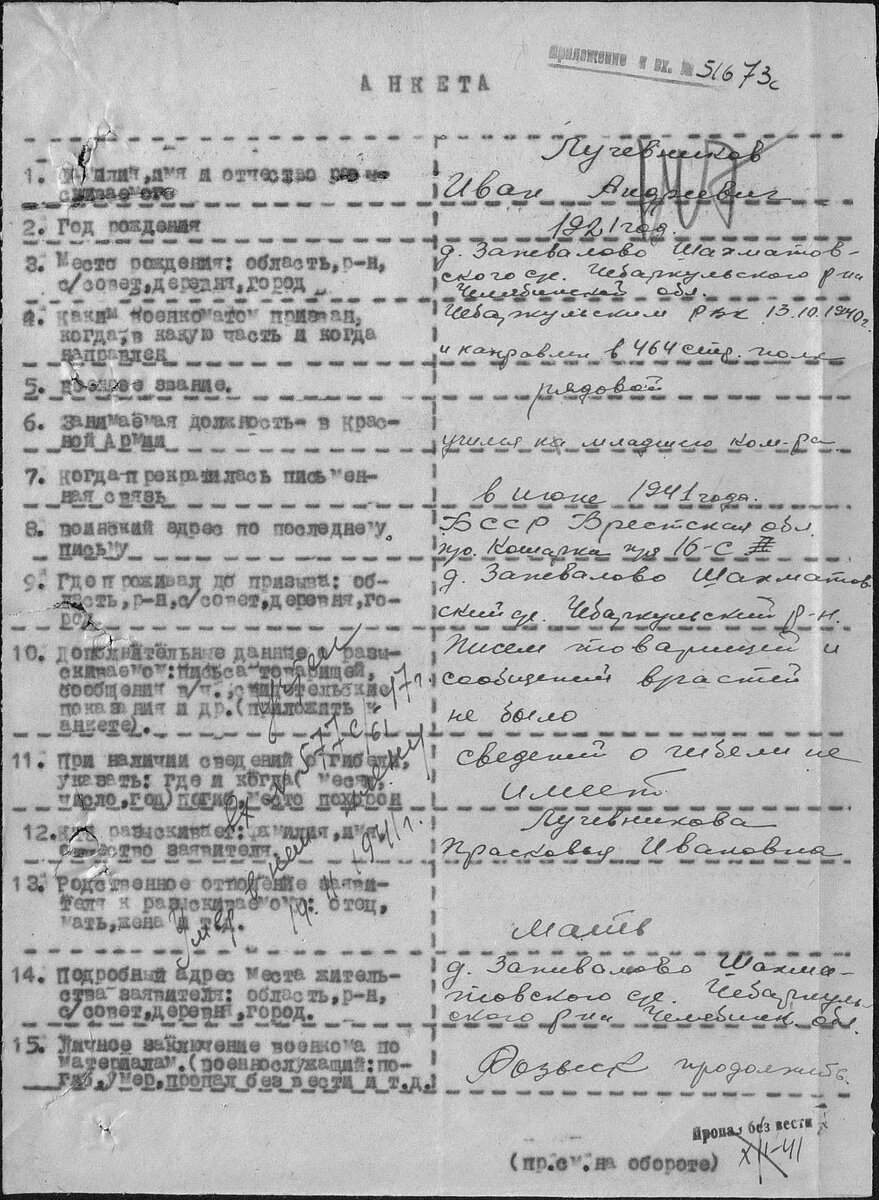 приложение к вх. № 51673с
АНКЕТА
1. Фамилия, имя и отчество разыскиваемого
Лучевников
Иван Андреевич
2. Год рождения
1921 год.
3. Место рождения: область, р-н,
с/совет, деревня, город
д. Запевалово Шахматов-
ского с/с. Чебаркульского р-на
Челябинской обл.
4. Каким военкоматом призван,
когда, в какую часть и когда
направлен
Чебаркульским РВК 13.10.1940г.
и направлен в 464 стр. полк
5. Военное звание.
рядовой
6. Занимаемая должность в Крас-
ной Армии
учился на младшего ком-ра.
7. Когда прекратилась письмен-
ная связь
в июне 1941 года.
8. Воинский адрес по последнему
письму
БССР Брестская обл
п/о. Кошарка п/я 16-С
9. Где проживал до призыва: об-
ласть, р-н, с/совет, деревня, го-
род
д. Запевалово Шахматов-
ский с/с. Чебаркульский р-н.
10. Дополнительные данные о разы-
скиваемом: письма товарищей,
сообщения в/ч., свидетельские
показания и др. (приложить к
анкете).
Писем товарищей и
сообщений в/частей
не было
11. При наличии сведений о гибели,
указать: где и когда (месяц,
число, год) погиб, место похорон
сведений о гибели не
имеет.
12. Кто разыскивает: фамилия, имя,
отчество заявителя.
Лучевникова
Прасковья Ивановна
13. Родственное отношение заяви-
теля к разыскиваемому: отец,
мать, жена и т.д.
Мать
14. Подробный адрес места житель-
ства заявителя: область, р-н,
с/совет, деревня, город.
д. Запевалово Шахма-
товского с/с. Чебаркуль-
ского р-на Челябинск. обл.
15. Личное заключение военкома по
материалам. (военнослужащий: по-
гиб, умер, пропал без вести и т.д.
Розыск продолжить.
Умер в плену
14.11.1941г.
Пропал без вести
XII-41
(пр.см.на обороте)